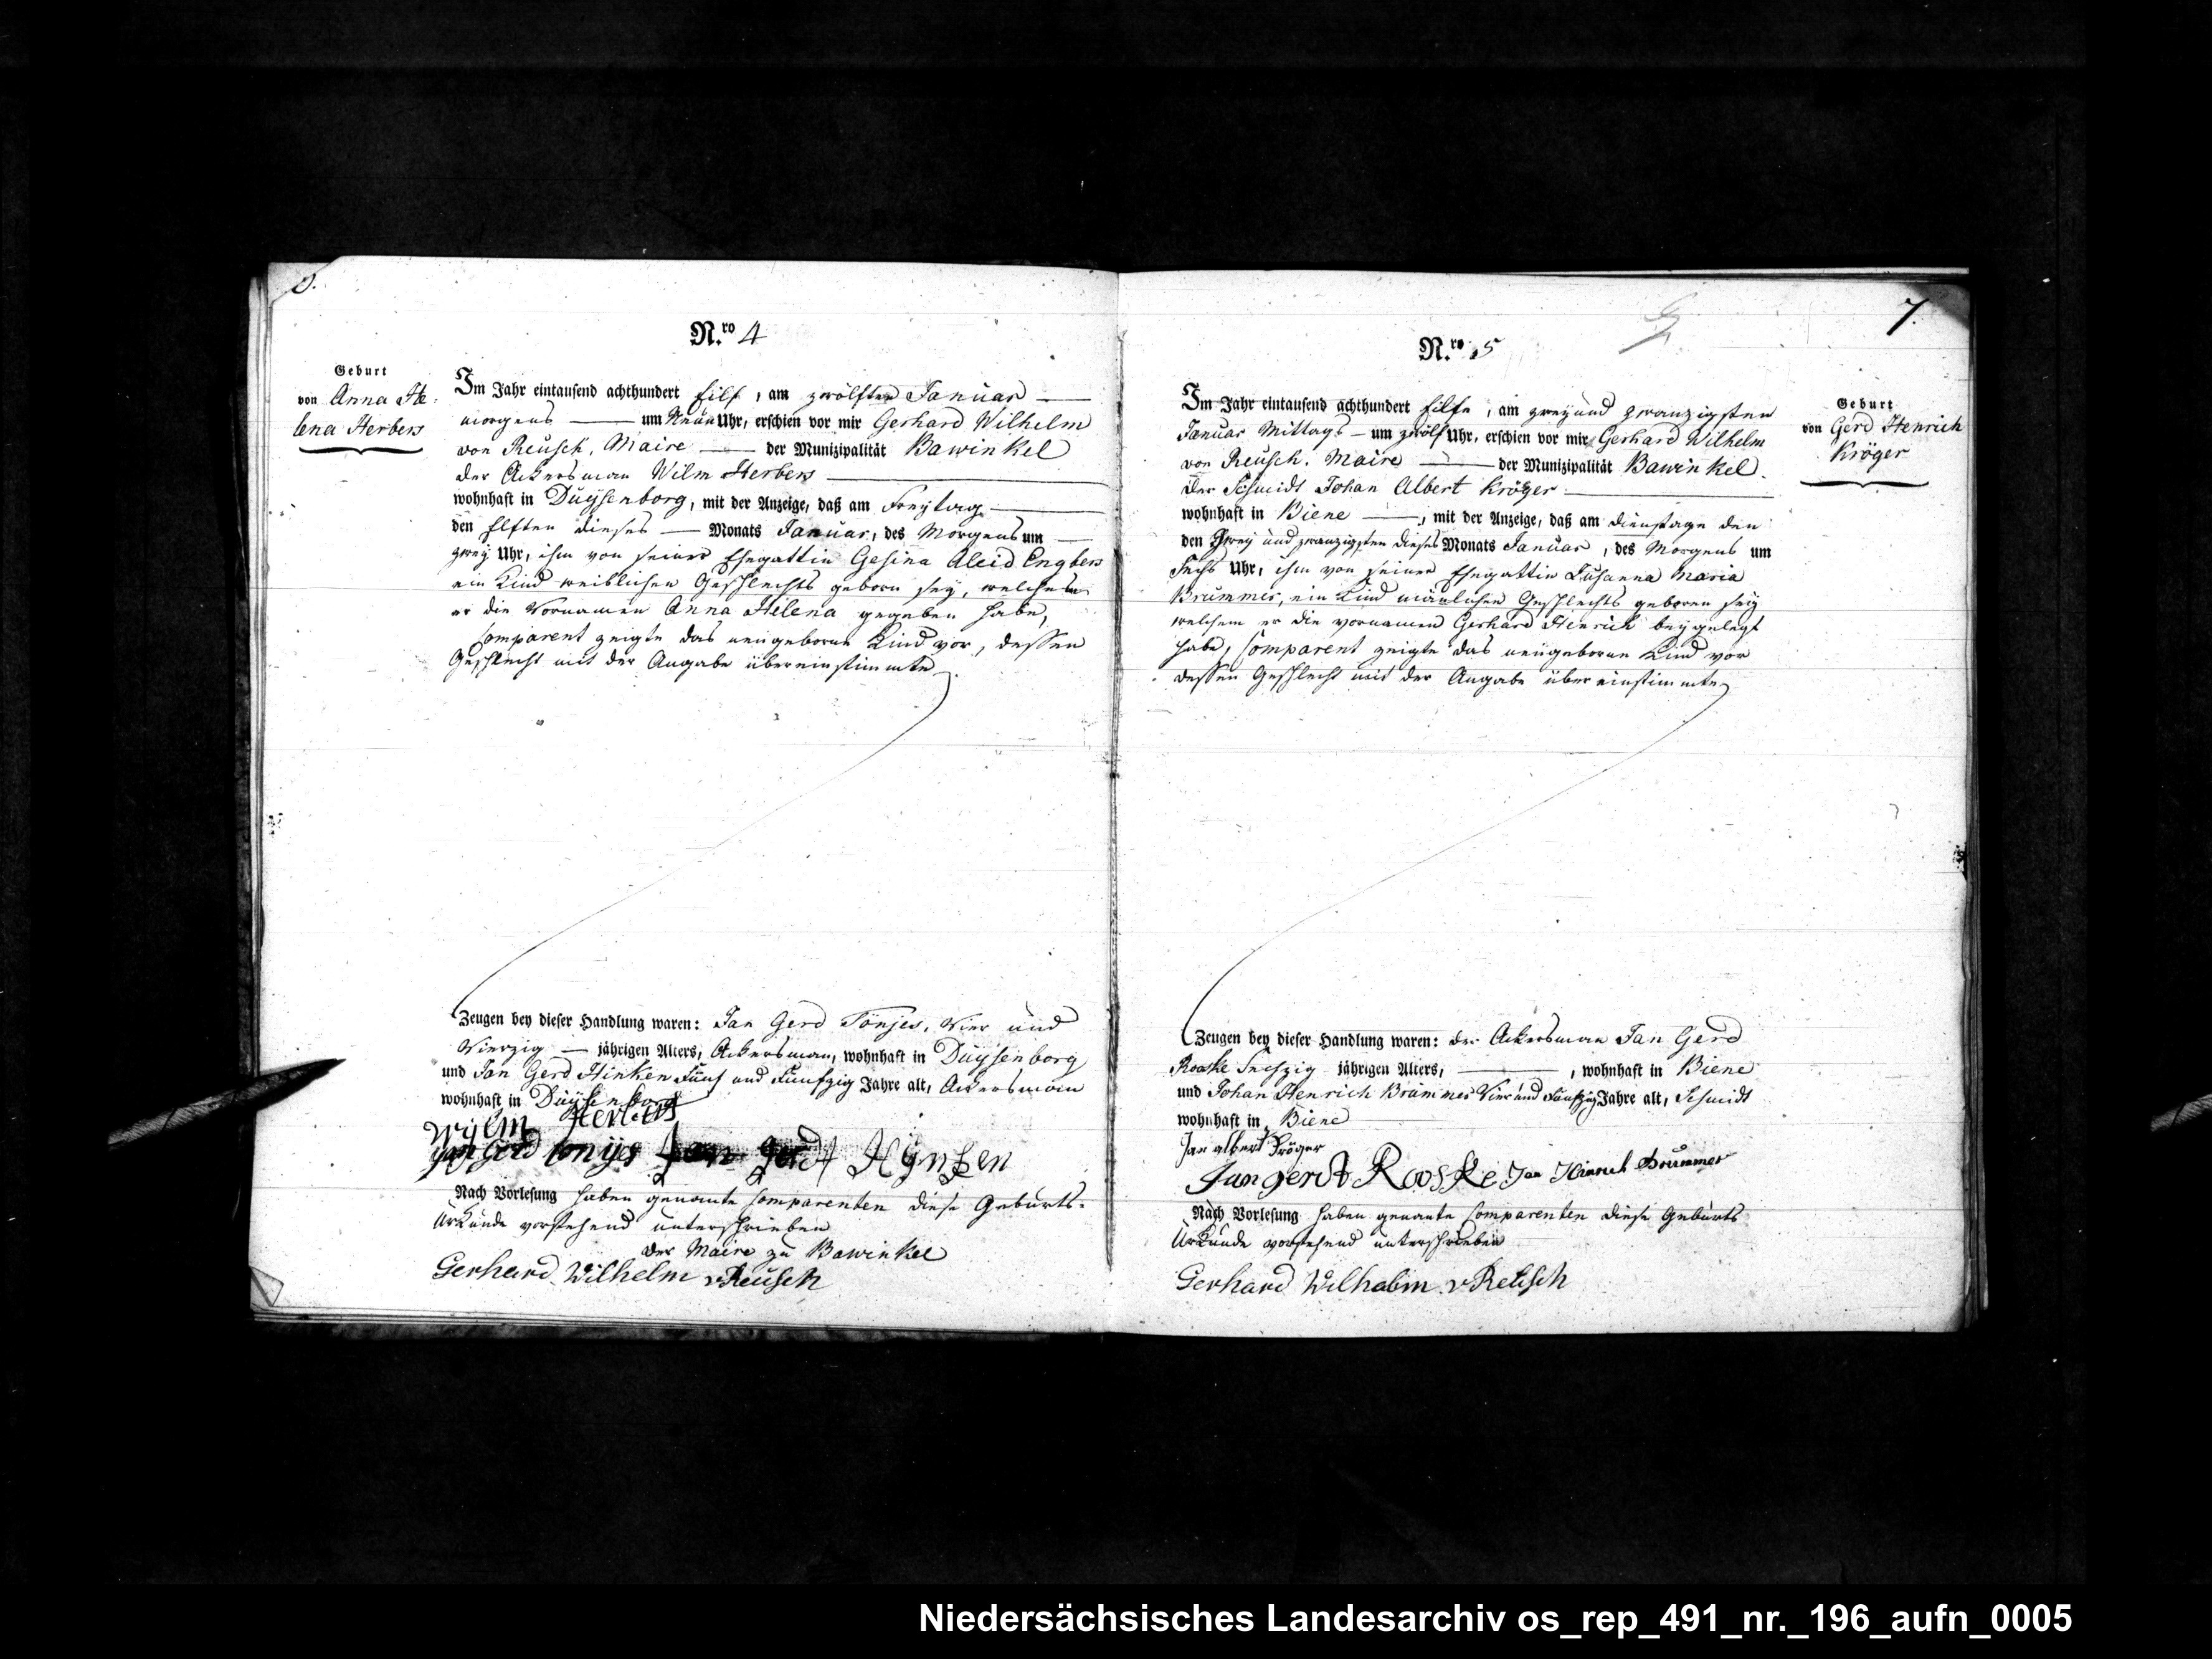 6.
N.ro 4
Geburt
von Anna He-
lena Herbers
Im Jahr eintausend achthundert Eilf, am zwölften Januar
morgens um Neun Uhr, erschien vor mir Gerhard Wilhelm
von Reusch, Maire der Munizipalität Bawinkel
der Ackersman Wilm Herbers
wohnhaft in Duysenborg, mit der Anzeige, daß am Freytag
den Elften dieses Monats Januar, des Morgens um
zwey Uhr, ihm von seiner Ehegattin Gesina Aleid Engbers
ein Kind weiblichen Geschlechts geborn sey, welchem
er die Vornamen Anna Helena gegeben habe,
Comparent zeigte das neugeborne Kind vor, dessen
Geschlecht mit der Angabe übereinstimmte
Zeugen bey dieser Handlung waren: Jan Gerd Tönjes, Vier und
Vierzig jährigen Alters, Ackersman, wohnhaft in Duysenborg
und Jan Gerd Hinken Fünf und Funfzig Jahre alt, Ackersman
wohnhaft in Duysenborg
Wylm Herbers
Jan Gerd tonijes Jan Gerdt Hynken
Nach Vorlesung haben genante Comparenten diese Geburts-
Urkunde vorstehend unterschrieben
der Maire zu Bawinkel
Gerhard Wilhelm vReusch
7.
N.ro 5
Geburt
von Gerd Henrich
Kröger
Im Jahr eintausend achthundert Eilfe, am zwey und zwanzigsten
Januar Mittags um zwölf Uhr, erschien vor mir Gerhard Wilhelm
von Reusch. Maire der Munizipalität Bawinkel.
der Schmidt Johan Albert Kröger
wohnhaft in Biene, mit der Anzeige, daß am dienstage den
den Zwey und zwanzigsten dieses Monats Januar, des Morgens um
Sechs Uhr, ihm von seiner Ehegattin Susanna Maria
Brümmer, ein Kind mänlichen Geschlechts geboren sey
welchem er die vornamen Gerhard Henrich beygelegt
habe, Comparent zeigte das neugeborne Kind vor
dessen Geschlecht mit der Angabe übereinstimmte
Zeugen bey dieser Handlung waren: der Ackersman Jan Gerd
Roaske Sechzig jährigen Alters, wohnhaft in Biene
und Johan Henrich Brümmer Vier und Funfzig Jahre alt, Schmidt
wohnhaft in Biene
Jan albert Kröger
Jan gerdt Rooske Jan Hinrich Brümmer
Nach Vorlesung haben genante Comparenten diese Geburts
Urkunde vorstehend unterschrieben
Gerhard Wilhelm vReusch
Niedersächsisches Landesarchiv os_rep_491_nr._196_aufn_0005